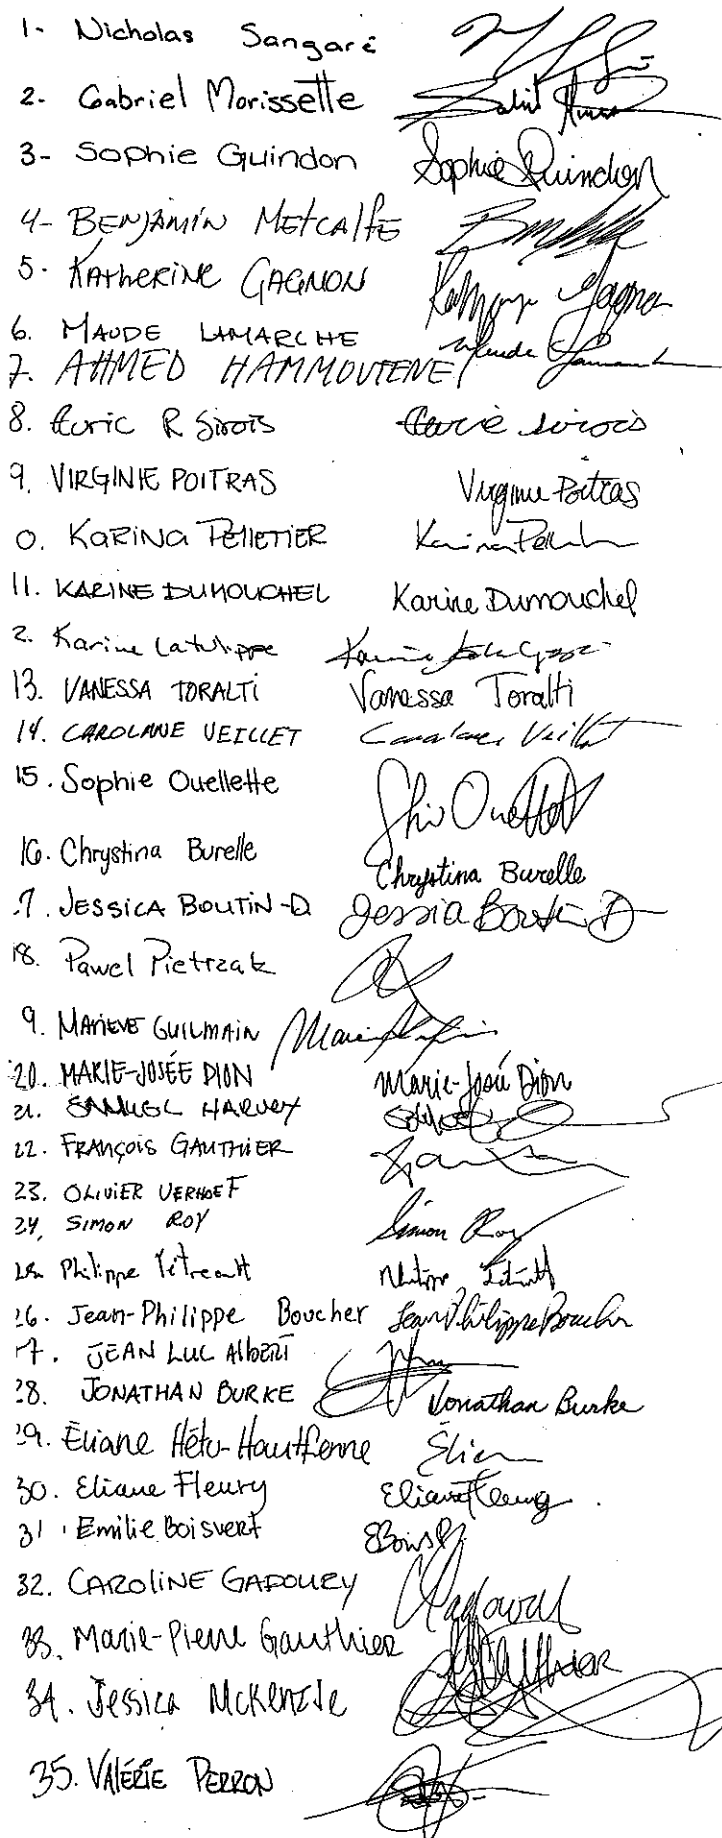 1- Nicholas Sangaré
2- Gabriel Morissette
3- Sophie Guindon Sophie Guindon
4- BENJAMIN METCALFE
5. KATHERINE GAGNON
6. MAUDE LAMARCHE Maude Lamarche
7. AHMED HAMMOUTENE
8. R Sirois
9. VIRGINIE POITRAS Virginie Poitras
0. KARINA PELLETIER Karina
11. KARINE DUMOUCHEL Karine Dumouchel
2. Karine Latulippe
13. VANESSA TORALTI Vanessa Toralti
14. CAROLANNE VEILLET Veillet
15. Sophie Ouellette
16. Chrystina Burelle Chrystina Burelle
7. JESSICA BOUTIN-D Jessica Boutin D
18. Pawel Pietrzak
9. MARIEVE GUILMAIN
20. MARIE-JOSÉE DION Marie-Josée Dion
21. SAMUEL HARVEY
22. FRANÇOIS GAUTHIER
23. OLIVIER VERHOEF
24. SIMON ROY Simon Roy
25. Philippe Tétreault
26. Jean-Philippe Boucher Jean Philippe Boucher
7. JEAN LUC Albert
28. JONATHAN BURKE Jonathan Burke
29. Éliane Hétu-Hautterre
30. Eliane Fleury Eliane Fleury
31. Emilie Boisvert
32. CAROLINE GADOURY
33. Marie-Pierre Gauthier
34. Jessica McKenzie
35. VALÉRIE PERRON